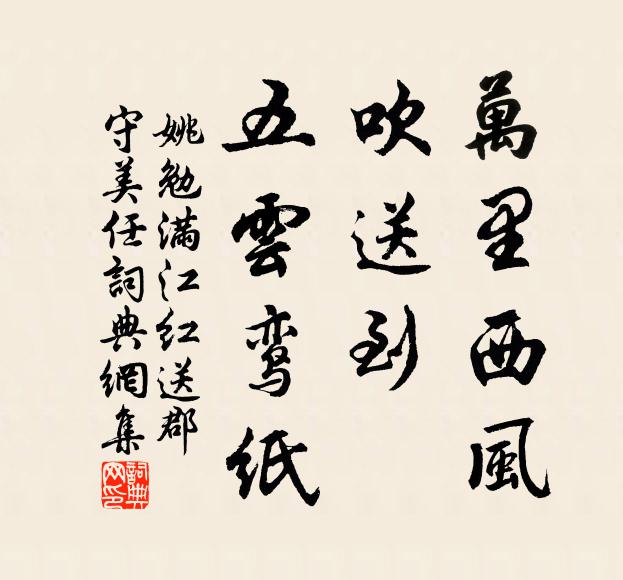 萬里西風
吹送到
五雲鸾紙
姚勉滿江红送郡
守美任詞典網集
詞典
网印